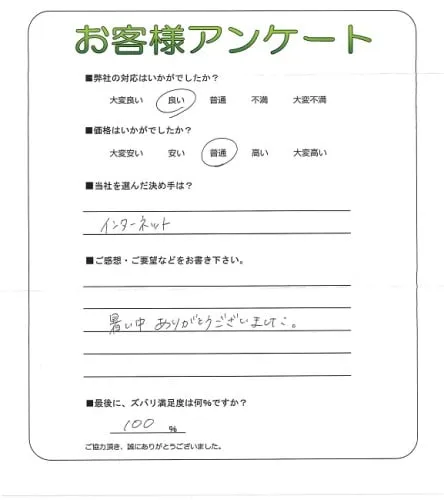 お客様アンケート
■弊社の対応はいかがでしたか？
大変良い 良い 普通 不満 大変不満
■価格はいかがでしたか？
大変安い 安い 普通 高い 大変高い
■当社を選んだ決め手は？
インターネット
■ご感想・ご要望などをお書き下さい。
暑い中 ありがとうございました。
■最後に、ズバリ満足度は何%ですか？
100 %
ご協力頂き、誠にありがとうございました。